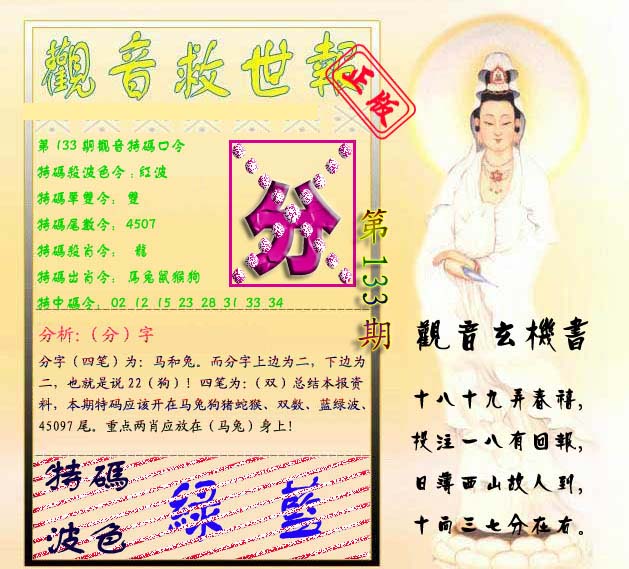 觀音救世報
正版
第133期觀音特碼口令
特碼殺波色令:紅波
特碼單雙令: 雙
特碼尾數令: 4507
特碼殺肖令: 龍
特碼出肖令: 馬兔鼠猴狗
特中碼令: 02 12 15 23 28 31 33 34
分
第133期
分析:（分）字
分字（四笔）为：马和兔。而分字上边为二，下边为
二，也就是说22（狗）！四笔为：（双）总结本报资
料，本期特码应该开在马兔狗猪蛇猴、双数、蓝绿波、
45097尾。重点两肖应放在（马兔）身上!
特碼
波色
綠 藍
觀音玄機書
十八十九弄春禧，
投注一八有回報，
日薄西山故人到，
十面三七分在右。